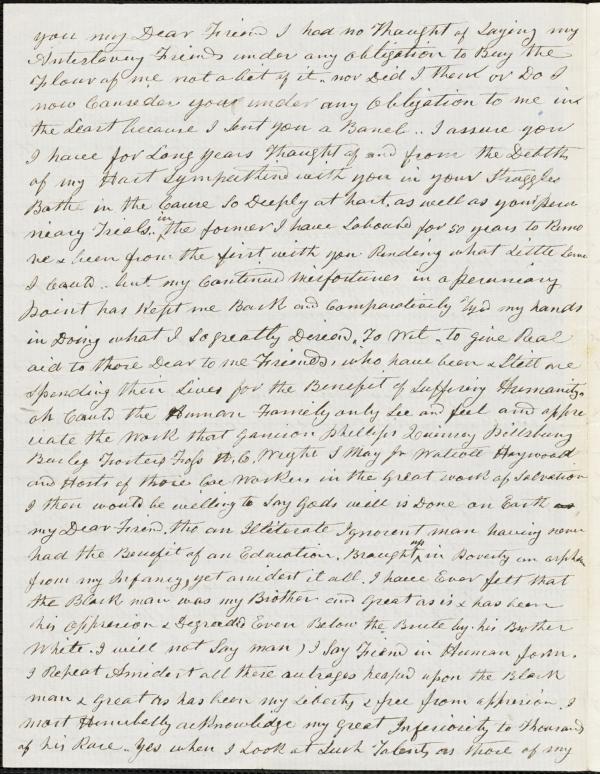 you my Dear Friend I had no Thought of Laying my
Antislavery Friends under any obligation to Buy the
Flour of me not a bit of it.. nor Did I think or Do I
now Consider your under any Obligation to me in
the Least because I Sent you a Barrel.. I assure you
I have for Long years Thought of and from the Debths
of my Hart Sympathised with you in your Struggles
Bothe in the Cause So Deeply at hart, as well as your pecu
niary Trials. in the former I have Laboured for 50 years to Remo
ve & been from the first with you Rending what Little
I Could.. but my Continued Misfortunes in a pecuniary
point has Kept me Back and Comparatively Tyd my hands
in Doing what I So greatly Desired, To Wit - to give Real
aid to those Dear to me Friends, who have been & Still are
Spending their Lives for the Benefit of Suffering Humanity.
oh Could the Human Famely only See and feel and appre
ciate the Work that Garrison Phillips Quinsey Pillsbury
Burley Fosters Foss H. C. Wright S May Jr Walcott Haywood
and Hosts of those Coe Workers in the Great work of Salvation
I then would be willing to Say Gods will is Done on Earth
my Dear Friend. tho an Illiterate Ignorent man having never
had the Benefit of an Education. Braught up in Poverty an orphan
from my Infancy, yet amidest it all. I have Ever felt that
the Black man was my Brother and great as is & has been
his oppresion & Degraded Even Below the Brute by his Brother
White. I will not Say man) I Say Fiend in Human form.
I Repeat Amidest all these outrages heaped upon the Black
man & Great as has been my Liberty & free from oppresion, I
most Humbelly acknowlidge my great Inferiority to Thousands
of his Race. Yes when I Look at Such Talents as those of my